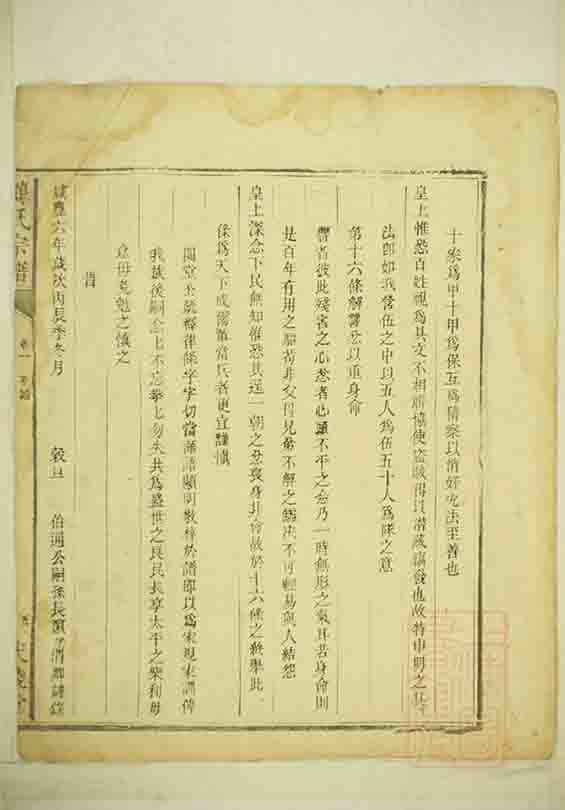 十家爲甲十甲爲保互爲稽察以消奸宄法至善也
皇上惟恐百姓視爲具文不相聯協使盜賊得以潛藏竊發也故特申明之
法卽如我營伍之中以五人爲伍五十人爲隊之意
第十六條解讐忿以重身命
讐者彼此殘害之心忿者心頭不平之念乃一時無形之氣耳若身命則
是百年有用之軀苟非父母兄弟不解之讐决不可輕易與人結怨
皇上深念下民無知惟恐其逞一朝之忿喪身其命故於十六條之終擧此
條爲天下戒爾當兵者更宜謹愼
閤堂公議釋律條字字切當誦語顯明敬梓於譜卽以爲家規家訓俾
我裁後嗣念七不忘拳七勿失共爲盛世之良民長享太平之樂利毋
怠毋忽勉之愼之
旹
咸豐六年歲次丙辰季冬月 穀旦 伯通公嗣孫長
氏宗譜 卷一